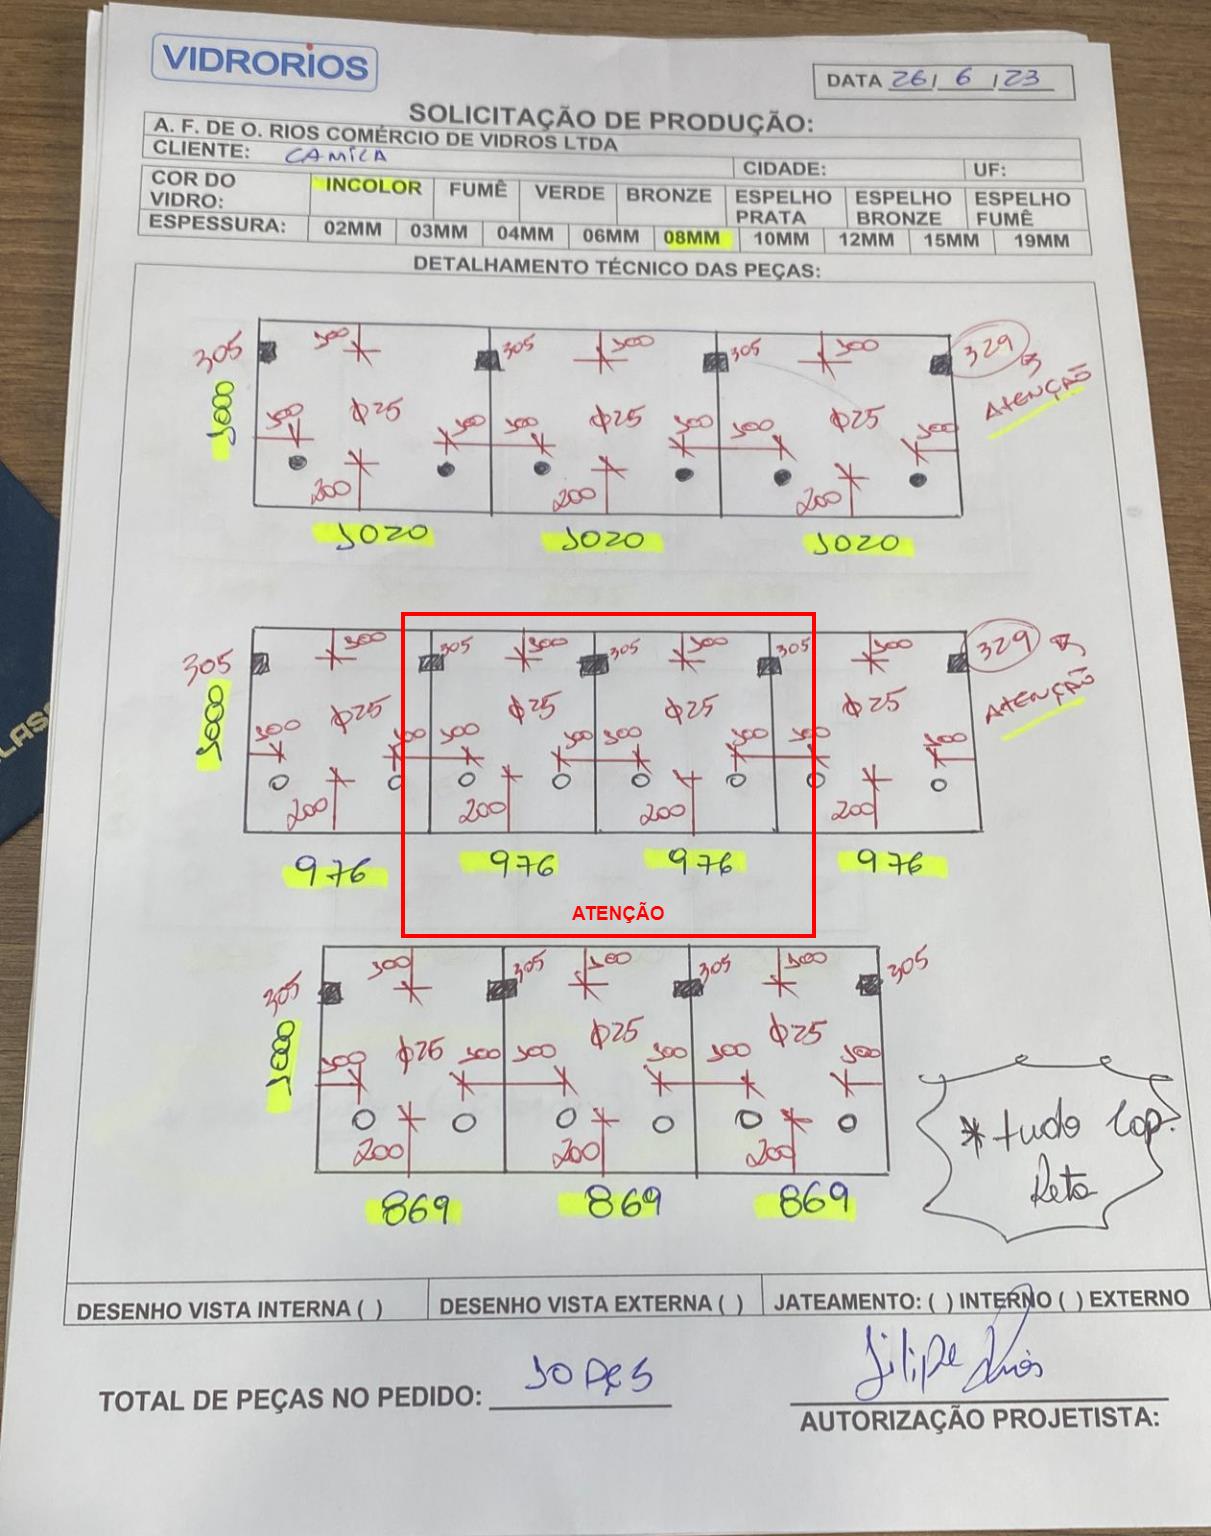 VIDRORIOS
DATA 26/ 6 /23
SOLICITAÇÃO DE PRODUÇÃO:
A. F. DE O. RIOS COMÉRCIO DE VIDROS LTDA
CLIENTE: CAMILA CIDADE: UF:
COR DO VIDRO: INCOLOR FUMÊ VERDE BRONZE ESPELHO PRATA ESPELHO BRONZE ESPELHO FUMÊ
ESPESSURA: 02MM 03MM 04MM 06MM 08MM 10MM 12MM 15MM 19MM
DETALHAMENTO TÉCNICO DAS PEÇAS:
305 100 305 100 305 100 329
ATENÇÃO
1000
100 Φ25 100 100 Φ25 100 100 Φ25 100
200 200 200
1020 1020 1020
305 100 305 100 305 100 305 100 329
ATENÇÃO
1000
Φ25 Φ25 Φ25 Φ25
100 100 100 100 100 100 100 100
200 200 200 200
976 976 976 976
ATENÇÃO
305 100 305 100 305 100 305
1000
Φ25 Φ25 Φ25
100 100 100 100 100 100
200 200 200
869 869 869
* tudo Lap.
Reto
DESENHO VISTA INTERNA ( ) DESENHO VISTA EXTERNA ( ) JATEAMENTO: ( ) INTERNO ( ) EXTERNO
TOTAL DE PEÇAS NO PEDIDO: 10 PÇS
Filipe Rios
AUTORIZAÇÃO PROJETISTA: